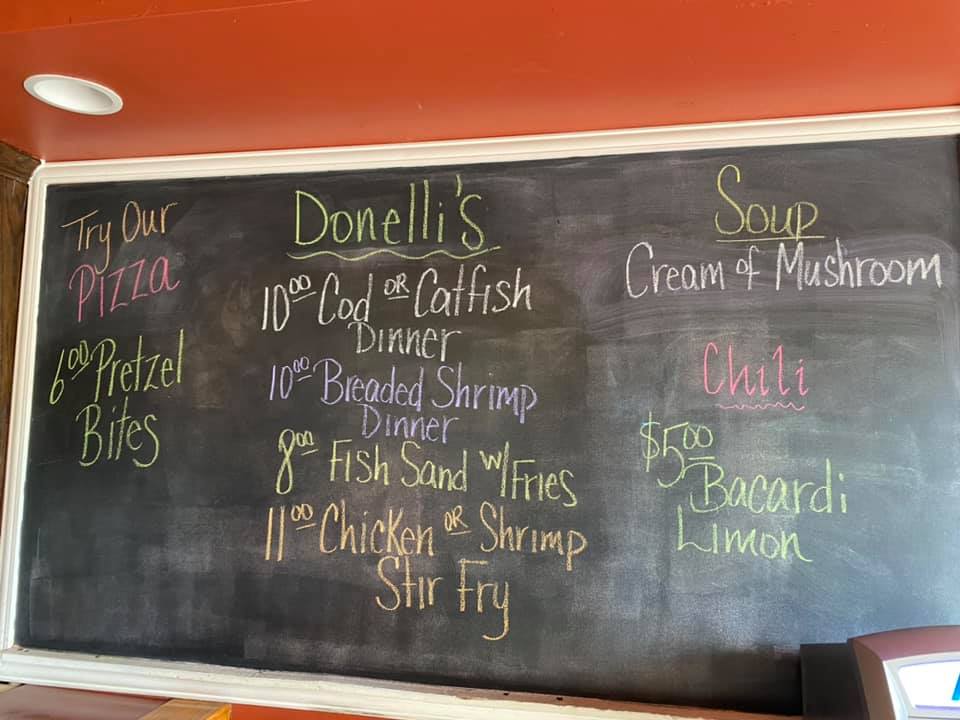 Try Our
Pizza
6.00 Pretzel
Bites
Donelli's
10.00 Cod OR Catfish
Dinner
10.00 Breaded Shrimp
Dinner
8.00 Fish Sand w/ Fries
11.00 Chicken OR Shrimp
Stir Fry
Soup
Cream of Mushroom
Chili
$5.00
Bacardi
Limon